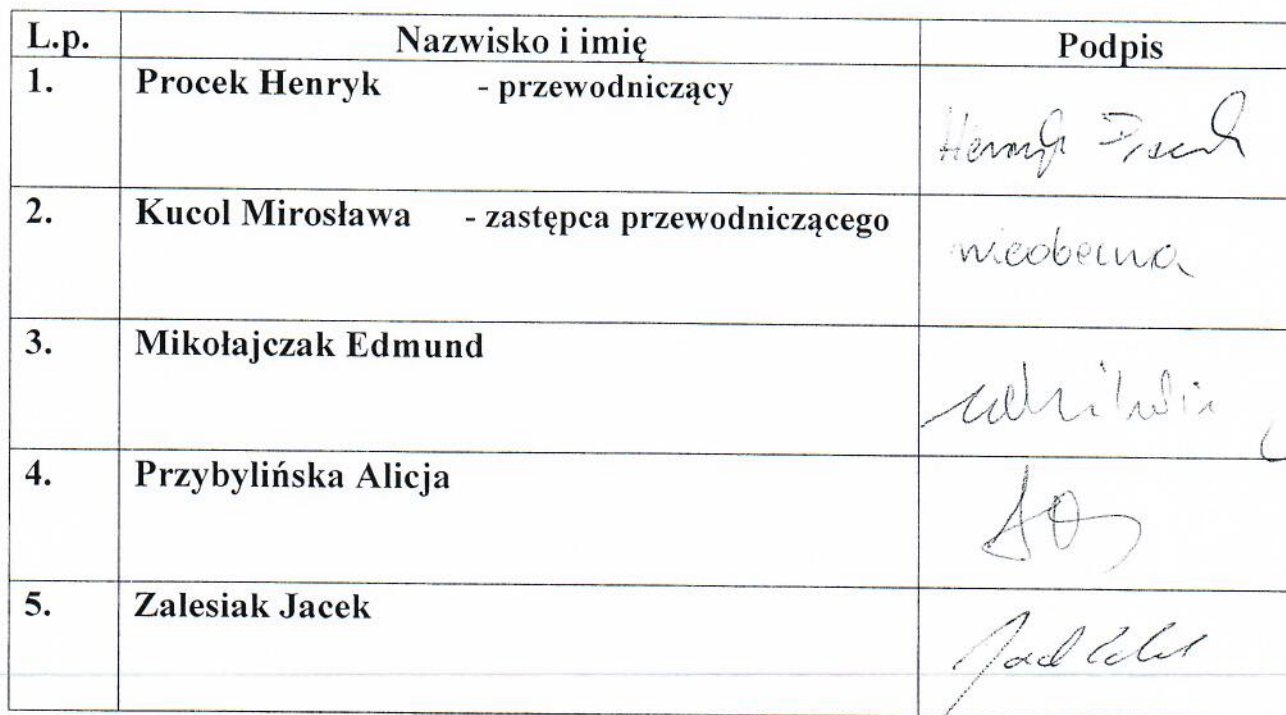 L.p. Nazwisko i imię Podpis
1. Procek Henryk - przewodniczący
Henryk Procek
2. Kucol Mirosława - zastępca przewodniczącego
nieobecna
3. Mikołajczak Edmund
4. Przybylińska Alicja
5. Zalesiak Jacek